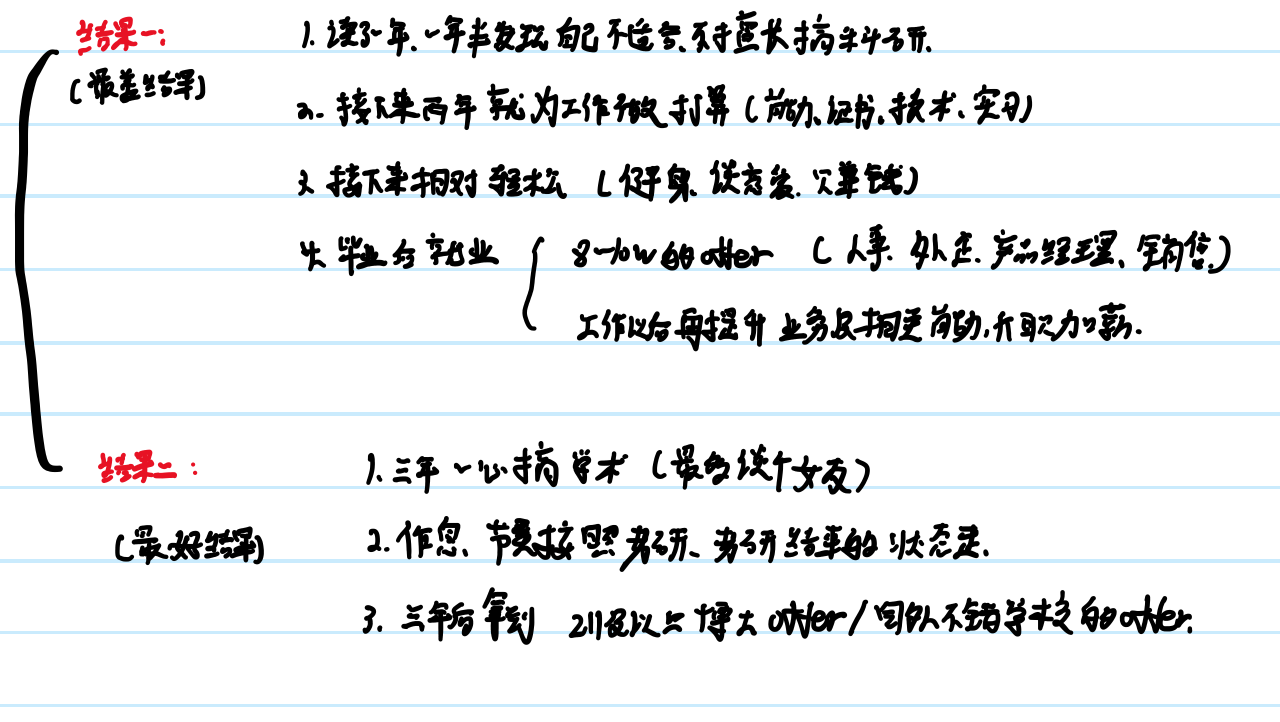 结果一:
(最差结果)
1. 读了一年、一年半发现自己不适合、不擅长搞科研.
2. 接下来两年就为工作做打算(活动、证书、技术、实习)
3. 接下来相对轻松(健身、谈恋爱、兼钱)
4. 毕业后就业 8~10w的other(人事、外企、产品经理、销售)
工作以后再提升业务及相关活动,升职加薪.
结果二:
(最好结果)
1. 三年一心搞学术(最多谈个女友)
2. 作息、节奏按照考研、考研结束的状态走.
3. 三年后拿到 211及以上博士other/国外不错学校的other.